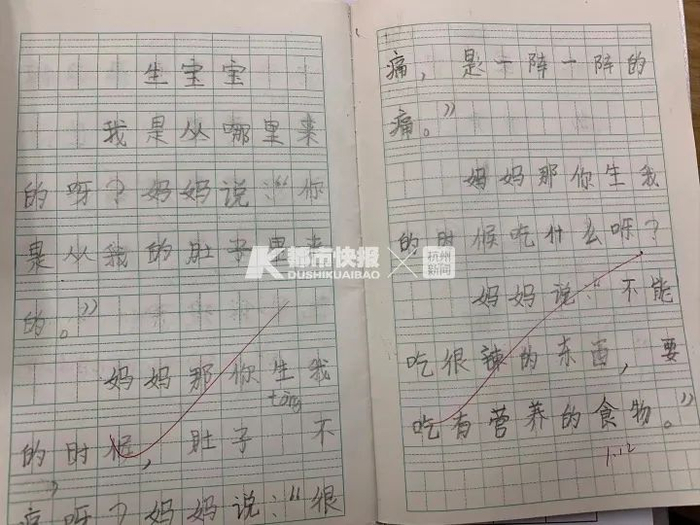 生宝宝
我是从哪里来
的呀？妈妈说：“你
是从我的肚子里来
的。”
妈妈那你生我
tòng
的时候，肚子 不
呀？妈妈说：“很
痛，是一阵一阵的
痛。”
妈妈那你生我
的时候吃什么呀？
妈妈说：“不能
吃很辣的东西，要
吃有营养的食物。”
1.12
都市快报
DUSHIKUAIBAO
杭州
新闻